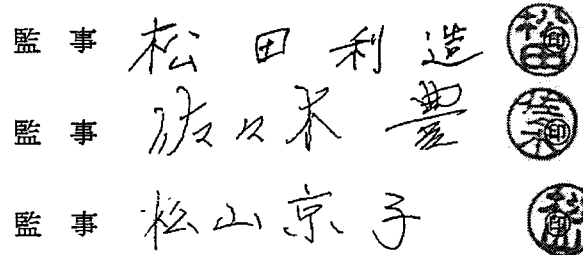 監 事 松 田 利 造 松田 印
監 事 佐々木 豊 佐々木 印
監 事 松山京子 印